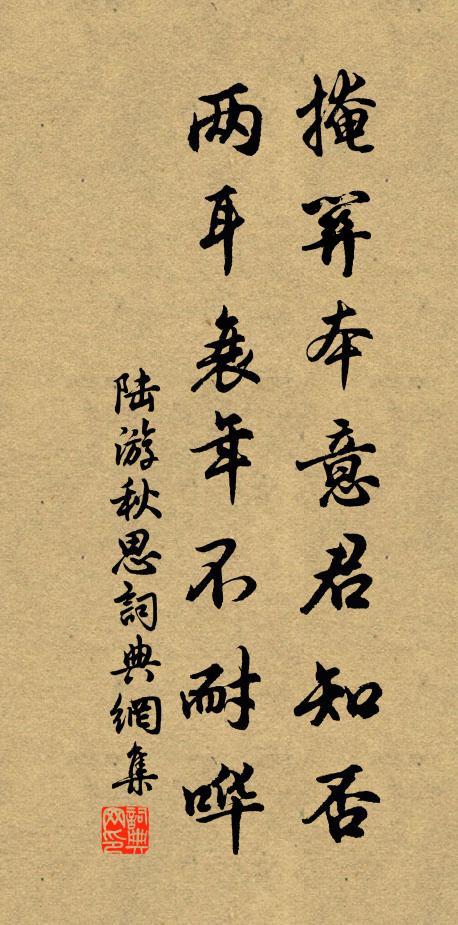 掩关本意君知否
两耳衰年不耐哗
陆游秋思詞典網集
詞典网印